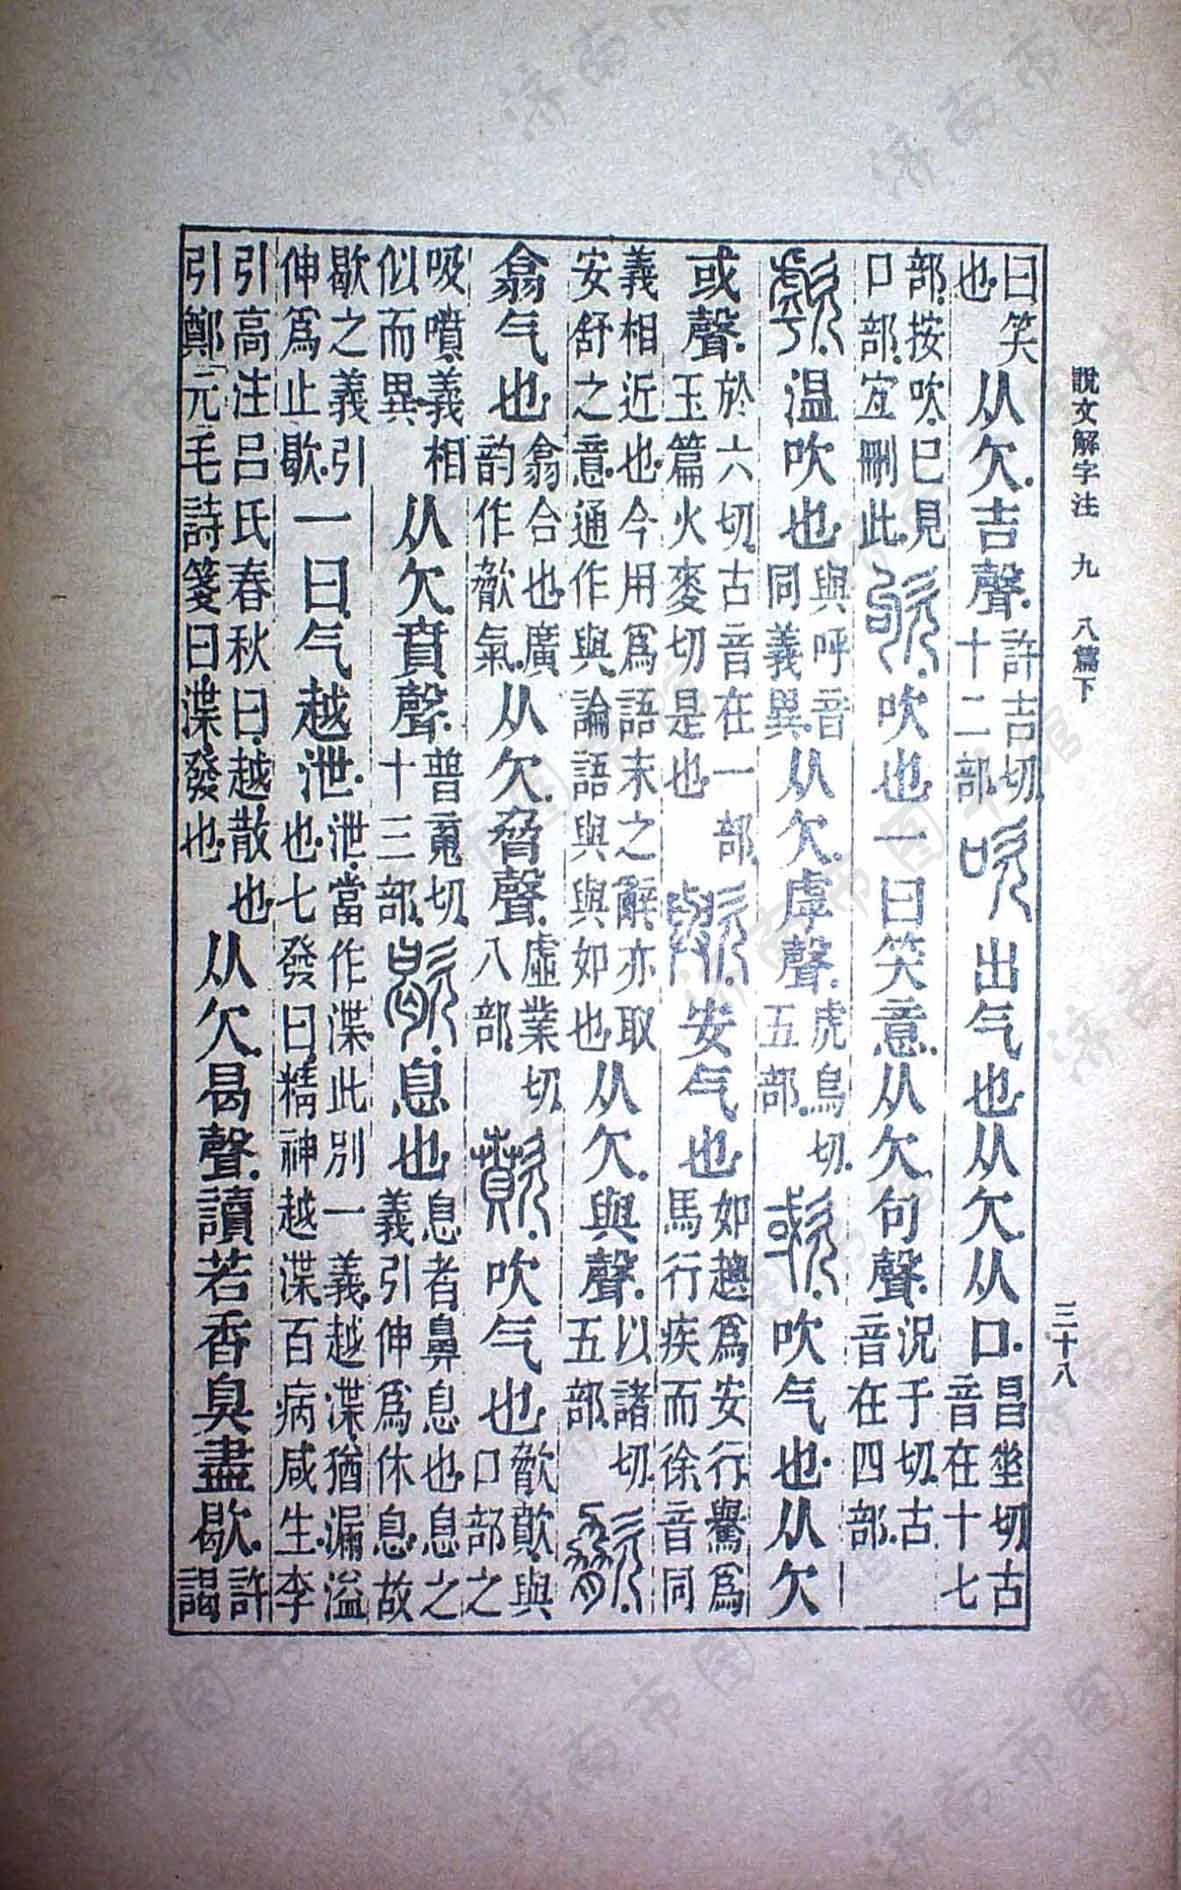 說文解字注 九 八篇下 三十八
曰笑也从欠吉聲許吉切十二部吹出气也从欠从口昌垂切古音在十七
部按吹已見口部宐刪此欨吹也一曰笑意从欠句聲況于切古音在四部
歑温吹也與呼音同義異从欠虖聲虎烏切五部㰲吹气也从欠
或聲於六切古音在一部玉篇火麥切是也歟安气也如爲安行鸒爲馬行疾而徐音同
義相近也今用爲語末之辭亦取安舒之意通作與論語與與如也从欠與聲以諸切五部㰼
翕气也翕合也廣韵作㰼氣从欠脅聲虛業切八部歕吹气也㰼歕與口部之
吸噴義相似而異从欠賁聲普䰟切十三部歇息也息者鼻息也息之義引伸爲休息故
歇之義引伸爲止歇一曰气越泄泄當作渫此別一義越渫猶漏溢也七發曰精神越渫百病咸生李
引高注呂氏春秋曰越散也引鄭元毛詩箋曰渫發也从欠曷聲讀若香臭盡歇許謁